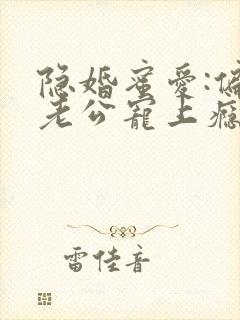 隐婚蜜爱:偏
老公宠上瘾
雷佳音